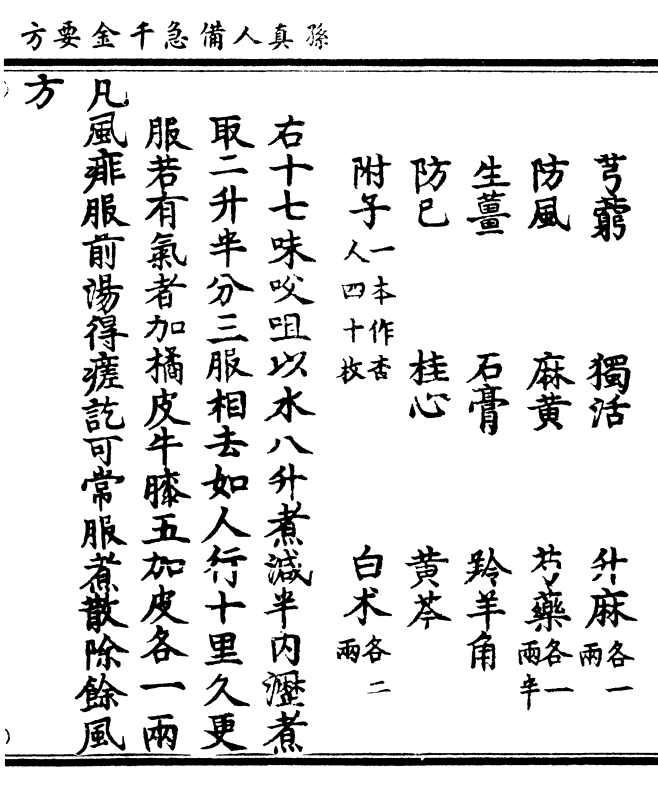 孫真人備急千金要方
芎藭　獨活　升麻各一兩
防風　麻黃　芍藥各一兩半
生薑　石膏　羚羊角
防己　桂心　黃芩
附子一本作杏人四十枚　白术各二兩
右十七味㕮咀以水八升煮減半內瀝煮
取二升半分三服相去如人行十里久更
服若有氣者加橘皮牛膝五加皮各一兩
凡風痱服前湯得瘥訖可常服煮散除餘風
方